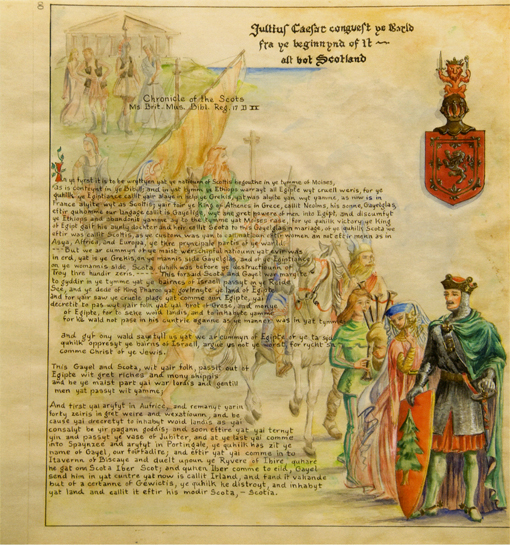 8
Julius Caesar conquest ye Warld
fra ye beginnynd of It ~~
all bot Scotland
Chronicle of the Scots
Ms. Brit. Mus. Bibl. Reg. 17 D XX
In ye fyrst it is to be wryttyn yat ye natioun of Scottis begouthe in ye tymme of Moises,
as is contenyt in ye Bibill; and in yat tymm ye Ethiops warrayt all Egipte wyt cruell weris, for ye
quhilk ye Egiptiance callit yair alaye in help ye Grekis, yat was alyite yan wyt yaime, as now is in
France alyite wyt us Scottis; yair four a King of Athence in Grece, callit Neolus, his sonne, Gayelglas,
eftir quhomme our langage callit is Gayelglas, wyt ane gret powere of men into Egipt, and discumfyt
ye Ethiops and abandand yaim at ye tymme yat Moises rase, for ye quhilk victory, ye King
of Egipt gaif his aunly dochter and air, callit Scota to this Gayelglas in mariage, of ye quhilk Scota we
eftir was callit Scottis, as ye custum was yan, to call natioun eftir women, an not eftir menn as in
Asya, Africe, and Europia, ye thre principale partis of ye warld:
—But we ar cummyn of ye maist werschipfull natioun yat evir was
in erd, yat is ye Grekis, on ye mannis side Gayelglas, and of ye Egiptiance
on ye womannis side, Scota, quhilk was before ye destructioun of
Troy thre hunder zeris. —— This forsaid Scota and Gayel was maryit
to gyddir in ye tymme yat ye bairnes of Israell passyt in ye Reide
See, and ye dede of King Pharao yat governyte ye land of Egipte
and for yair saw ye cruele plage yat comme on Egipte, yai
decretit to pas wyt yair folk yat yai brot of Grece, and menye
of Egipte, for to seike woid landis, and to inhabyte yamme
for ya wald not pase in his cuntrie agane as ye maner was in yat tymm
and gyf ony wald say till us yat we ar cummyn of Egipte of ye tayside
quhilk oppressyt ye barnis of Israell, argue us not ye worst, for rycht sa
comme Christ of ye Jewis.
This Gayel and Scota, wyt yair folk, passit out of
Egipte wit gret riches and mony shippis
and he ye maist part yat war lordis and gentill
men yat passyt wit yamme.
And first yai aryfyt in Aufrice, and remanyt yarin
forty zeiris in gret weire and wexatiounn, and be
cause yai decretyt to inhabyt woid landis as yai
consalyt be yir pagann goddis; and soon eftire yai, yai ternyt
yin and passyt ye vase of Jubiter, and at ye last yai comme
into Spaynzee and aryfyt in Portingale, ye quhilk has zit ye
name of Gayel, our fairfadire; and eftir yat yai comme in to
Itavernn of Biscaye and duelt upoun ye Ryvere of Ibire quhare
he gat ons Scota Iber Scot; and quhen Iber comme to eild, Gayel
send him in yat cuntre yat now is callit Irland, and fand it vakande
but of a certanne of Gewictis, ye quhilk he distroyt, and inhabyt
yat land and callit it eftir his modir Scota, — Scotia.